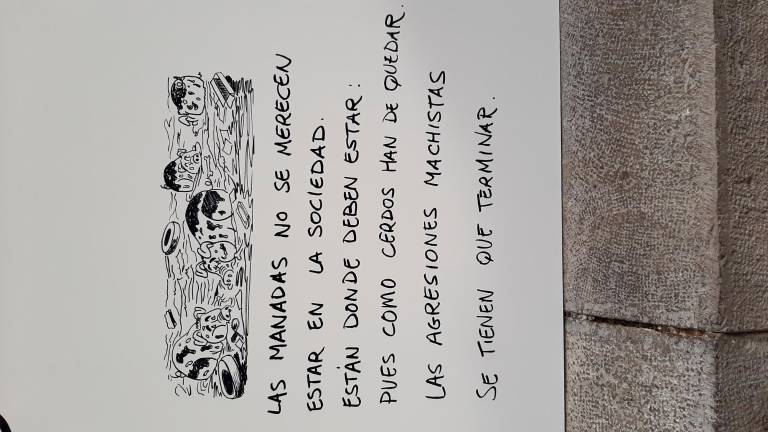 LAS MANADAS NO SE MERECEN
ESTAR EN LA SOCIEDAD.
ESTÁN DONDE DEBEN ESTAR:
PUES COMO CERDOS HAN DE QUEDAR.
LAS AGRESIONES MACHISTAS
SE TIENEN QUE TERMINAR.